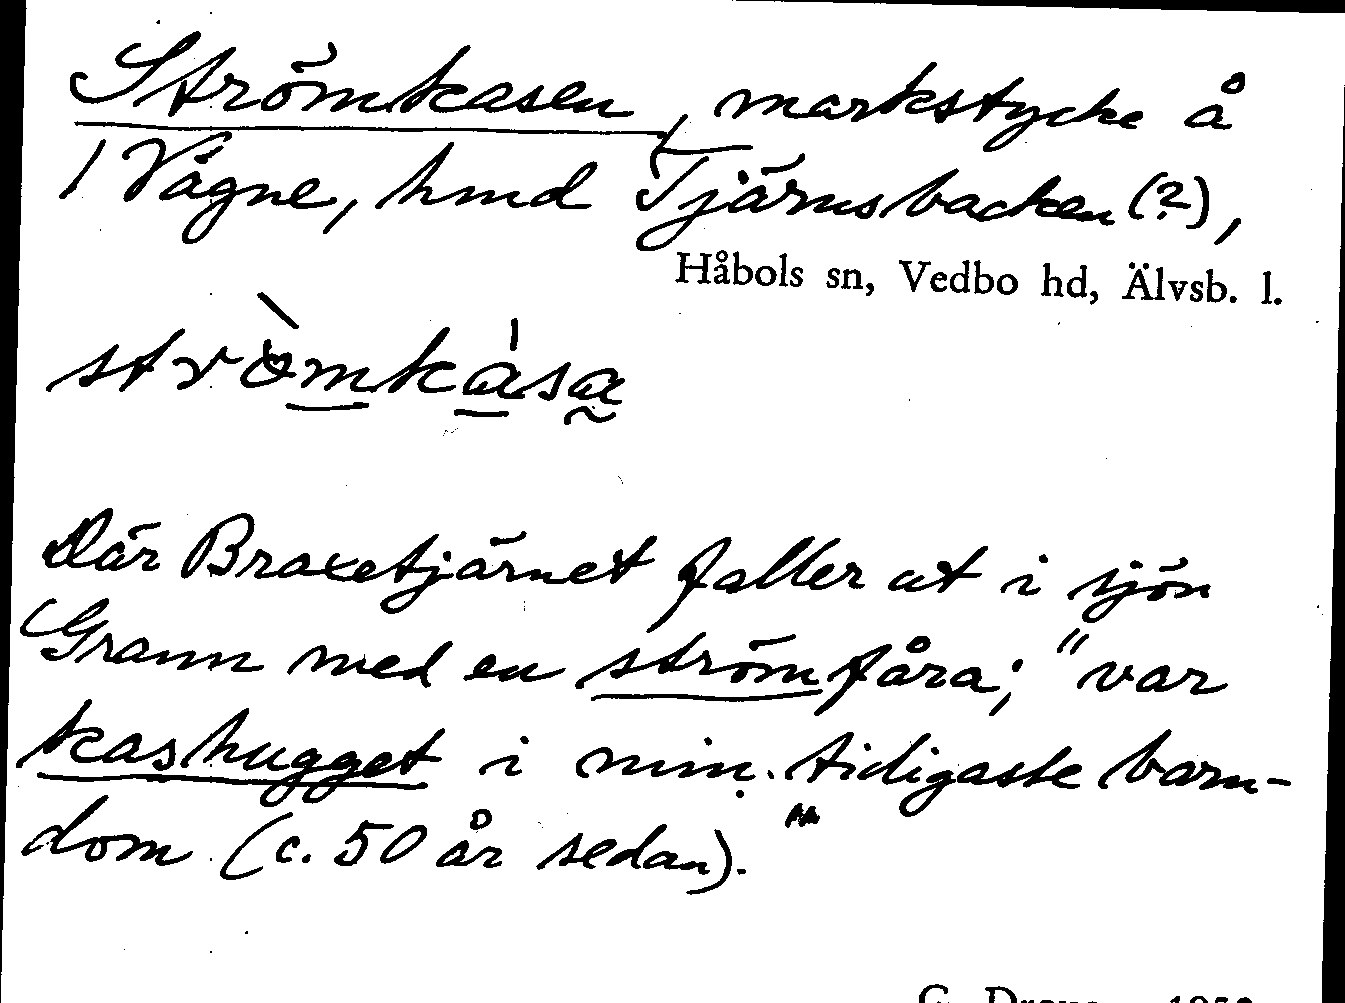 Strömkasen, markstycke å
1 Vågne, hmd Tjärnsbacken (?),
Håbols sn, Vedbo hd, Älvsb. l.
strömkasa
Där Braxetjärnet faller ut i sjön
Grann med en strömfåra; "var
kashugget i min tidigaste barn-
dom (c. 50 år sedan)."